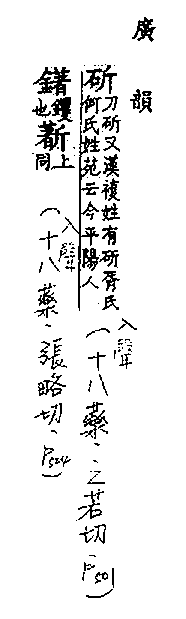 廣韻
斫刀斫又漢複姓有斫胥氏何氏姓苑云今平陽人(入聲十八藥‧之若切‧P501)
䥳钁也㸖上同(入聲十八藥‧張略切‧P504)